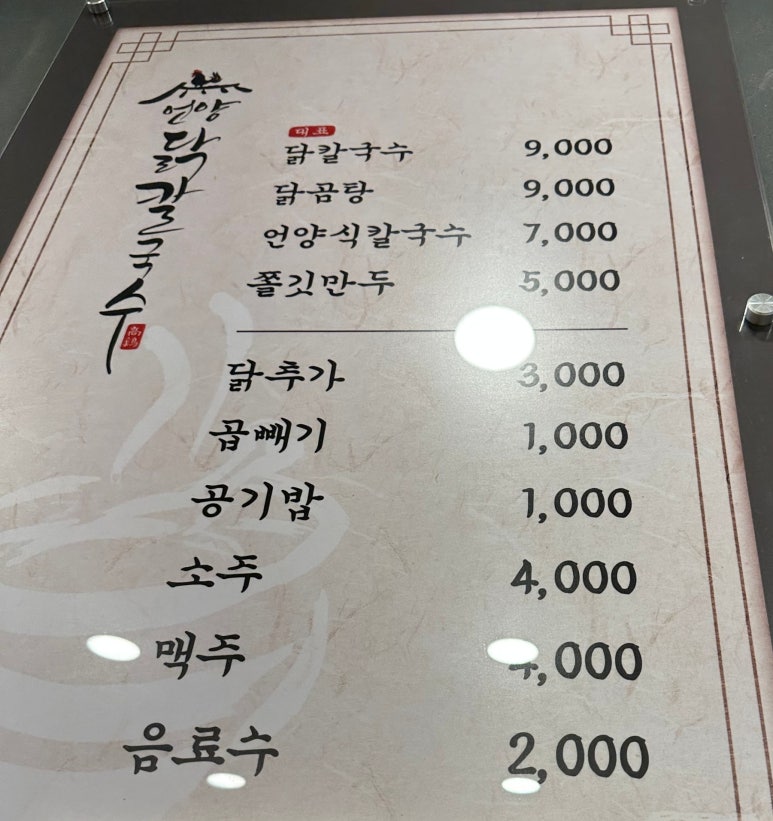 언양
닭칼국수
高鷄
대표
닭칼국수 9,000
닭곰탕 9,000
언양식칼국수 7,000
쫄깃만두 5,000
닭추가 3,000
곱빼기 1,000
공기밥 1,000
소주 4,000
맥주 4,000
음료수 2,000